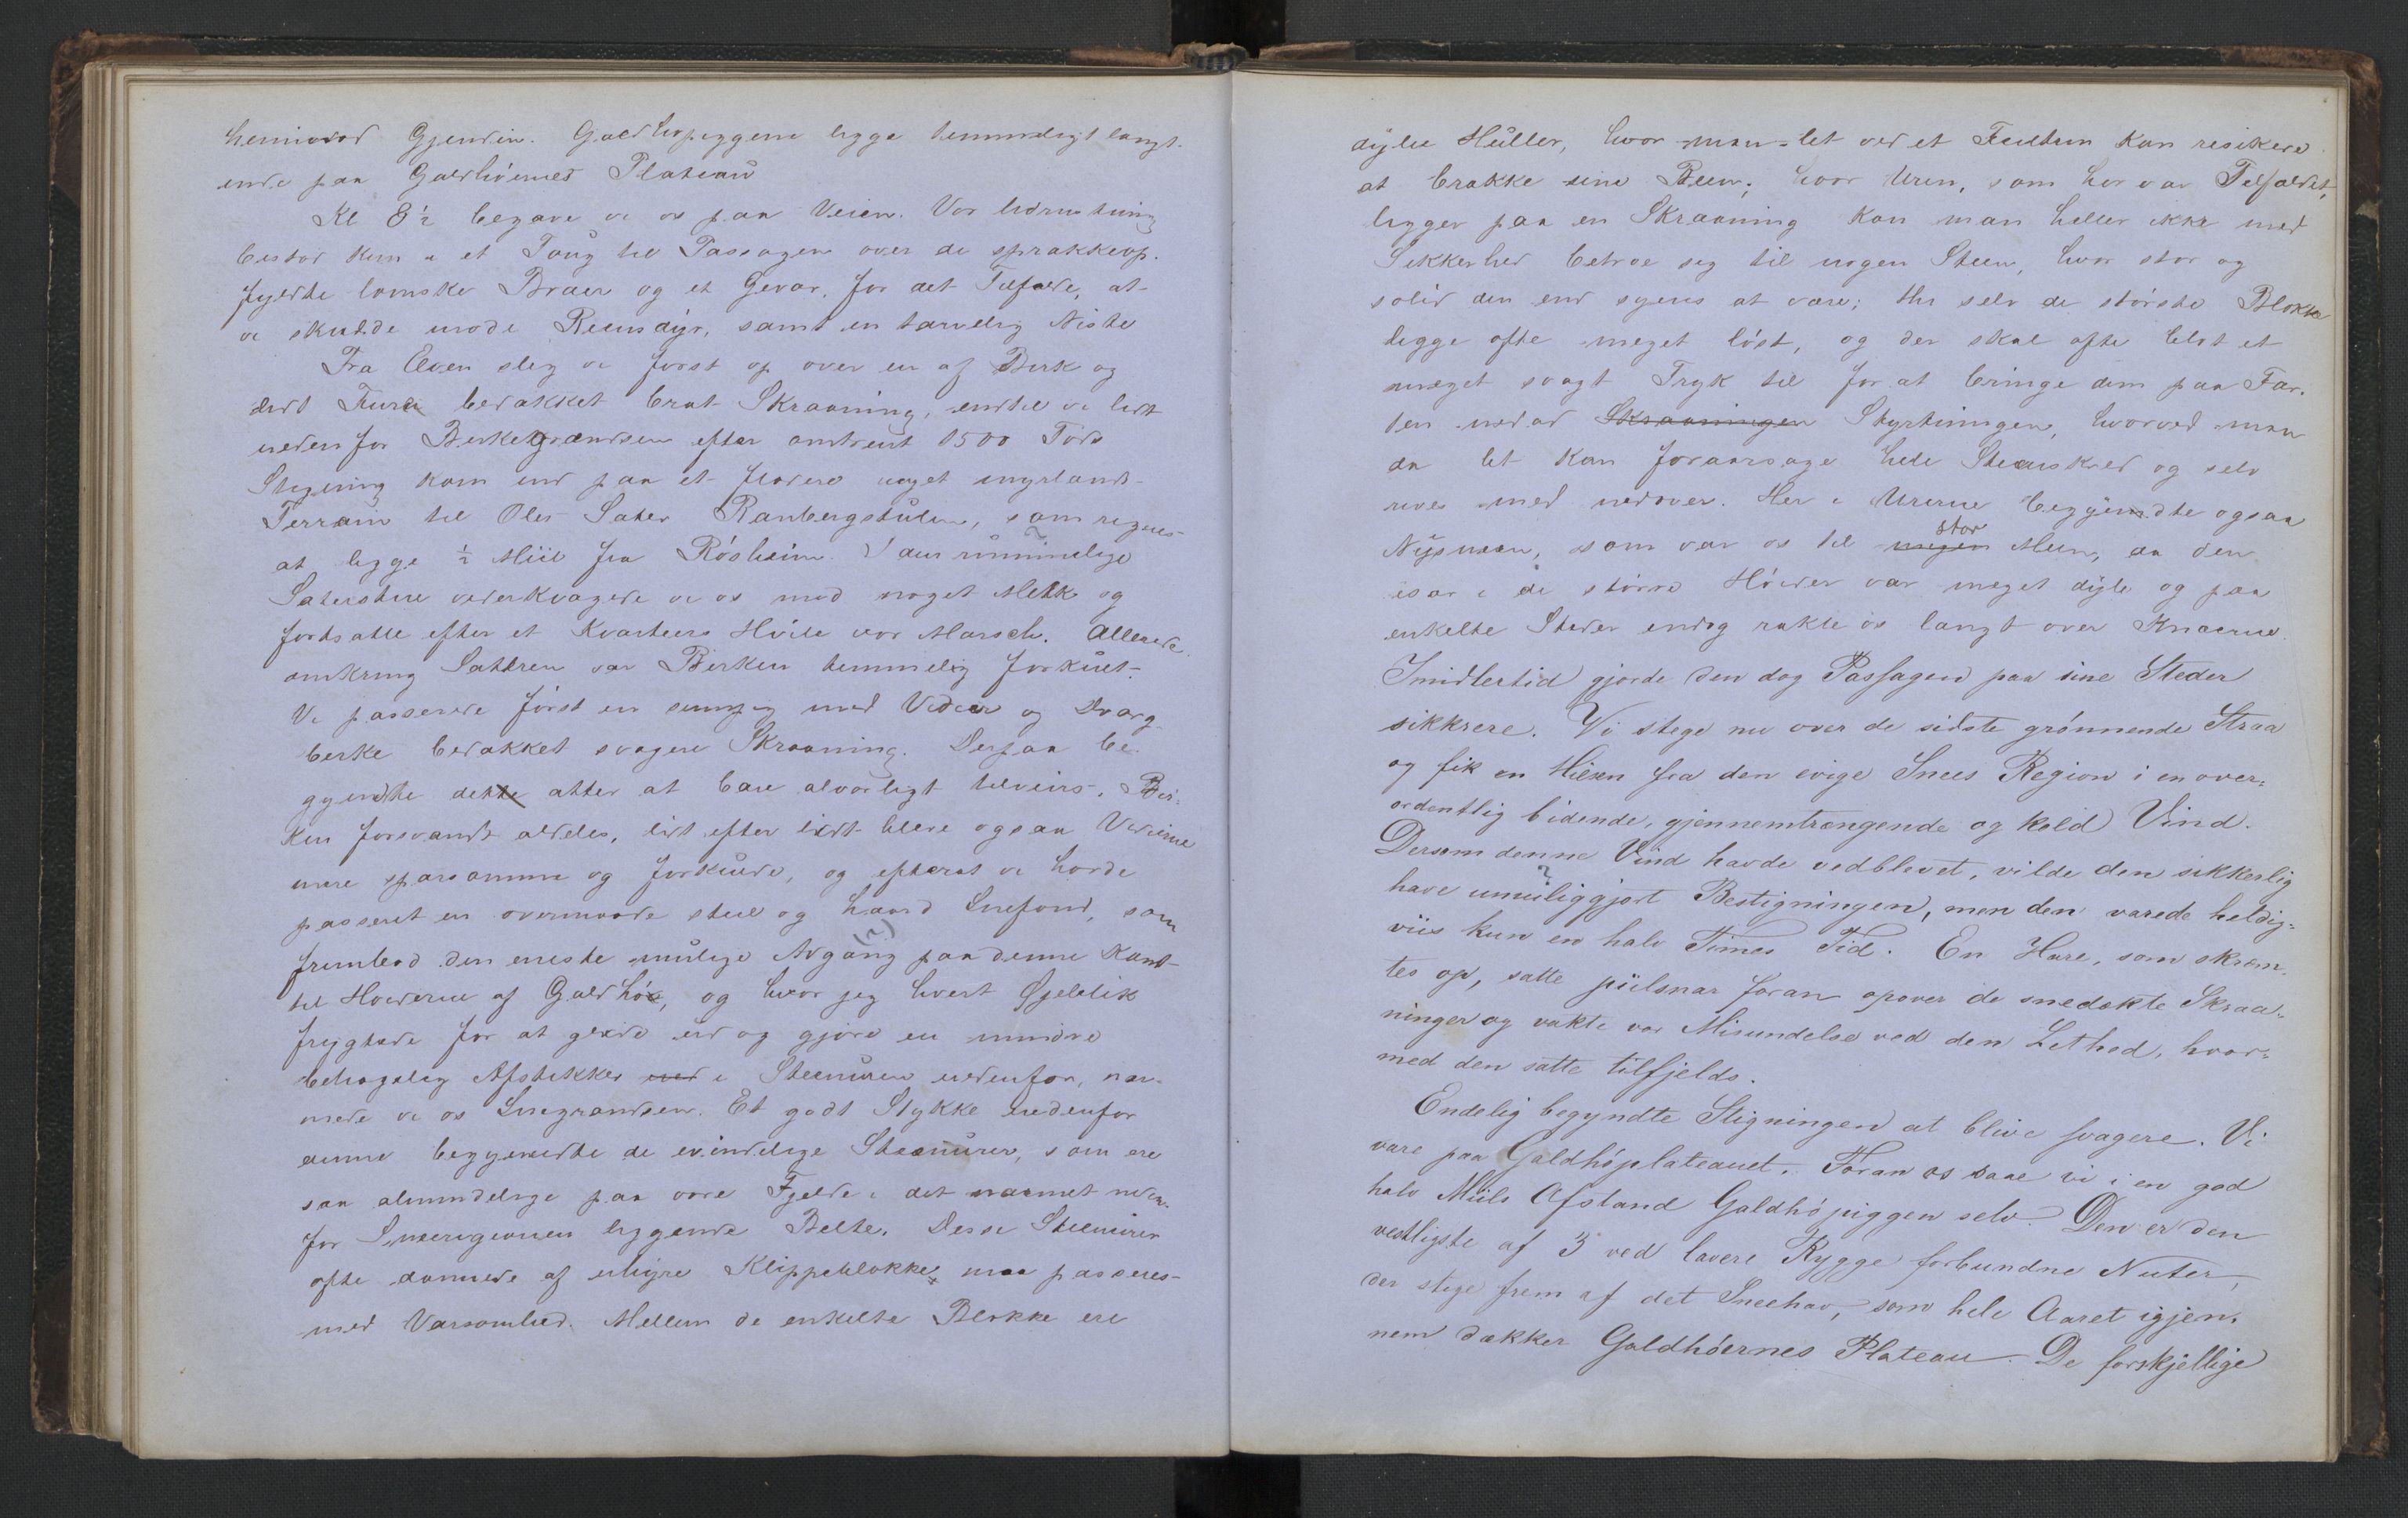 henimod Gjendin. Galdhøpiggene ligge temmeligt langt
inde paa Galdhøernes Plateau
Kl 8½ begave vi os paa Veien. Vor Udrustning
bestod kun i et Toug til Passagen over de sprækkeop-
fyldte lomske Bræer og et Gevær, for det Tilfælde, at
vi skulde møde Reensdyr, samt en tarvelig Niste
Fra Elven steg vi først op over en af Birk og
lidt Furu bedækket brat Skraaning, indtil vi lidt
nedenfor Birkegrændsen efter omtrent 1500 Fods
Stigning kom ind paa et fladere noget myrlændt
Terrain til Oles Sæter Raubergstulen, som regnes
at ligge ½ Miil fra Røsheim. I den rummelige
Sæterstue vederkvægede vi os med noget Melk og
fortsatte efter et Kvarteers Hvile vor Marsch. Allerede
omkring Sættren var Birken temmelig forkuet.
Vi passerede først en sumpig med Vidier og Dværg-
berke bedækket svagere Skraaning. Derpaa be-
gyndte dette atter at bære alvorligt tilveirs. Bir-
ken forsvandt aldeles, lidt efter lidt bleve ogsaa Vidierne
mere sparsomme og forkuede, og efterat vi havde
passeret en overmaade steil og haard Snefond, som
frembød den eneste mulige Adgang (?) paa denne Kant
til Høiderne af Galdhø, og hvor jeg hvert Øieblik
frygtede for at glide ud og gjøre en mindre
behagelig Afstikker ned i Steenuren nedenfor, nær-
mede vi os Snegrændsen. Et godt Stykke nedenfor
denne begyndte de evindelige Steenurer, som ere
saa almindelige paa vore Fjelde i det nærmest neden-
for Sneregionen liggende Belte. Disse Steenurer
ofte dannede af uhyre Klippeblokke, maa passeres
med Varsomhed. Mellem de enkelte Blokke ere
dybe Huller, hvor man let ved et Feiltrin kan risikere
at brække sine Been; hvor Uren, som her var Tilfældet,
ligger paa en Skraaning kan man heller ikke med
Sikkerhed betroe sig til nogen Steen, hvor stor og
solid den end synes at være; thi selv de største Blokke
ligge ofte meget løst, og der skal ofte blot et
meget svagt Tryk til for at bringe dem paa Far-
ten nedad Skraaningen Styrtningen, hvorved man
da let kan foraarsage hele Steenskred og selv
rives med nedover. Her i Urerne begyndte ogsaa
Nysneen, som var os til megen stor Meen, da den
især i de større Høider var meget dyb og paa
enkelte Steder endog rakte os langt over Knæerne.
Imidlertid gjorde den dog Passagen paa sine Steder
sikkrere. Vi stege nu over de sidste grønnende Straa
og fik en Hilsen fra den evige Snees Region i en over-
ordentlig bidende, gjennemtrængende og kold Vind.
Dersom denne Vind havde vedblevet, vilde den sikkerlig
have umuliggjort Bestigningen, men den varede heldig-
viis kun en halv Times Tid. En Hare, som skræm-
tes op, satte piilsnar foran opover de snedækte Skraa-
ninger og vakte vor Misundelse ved den Lethed, hvor-
med den satte tilfjelds.
Endelig begyndte Stigningen at blive svagere. Vi
vare paa Galdhøplateauet. Foran os saae vi i en god
halv Miils Afstand Galdhøpiggen selv. Den er den
vestligste af 3 ved lavere Rygge forbundne Nuter,
der stige frem af det Sneehav, som hele Aaret igjen-
nem dækker Galdhøernes Plateau. De forskjellige